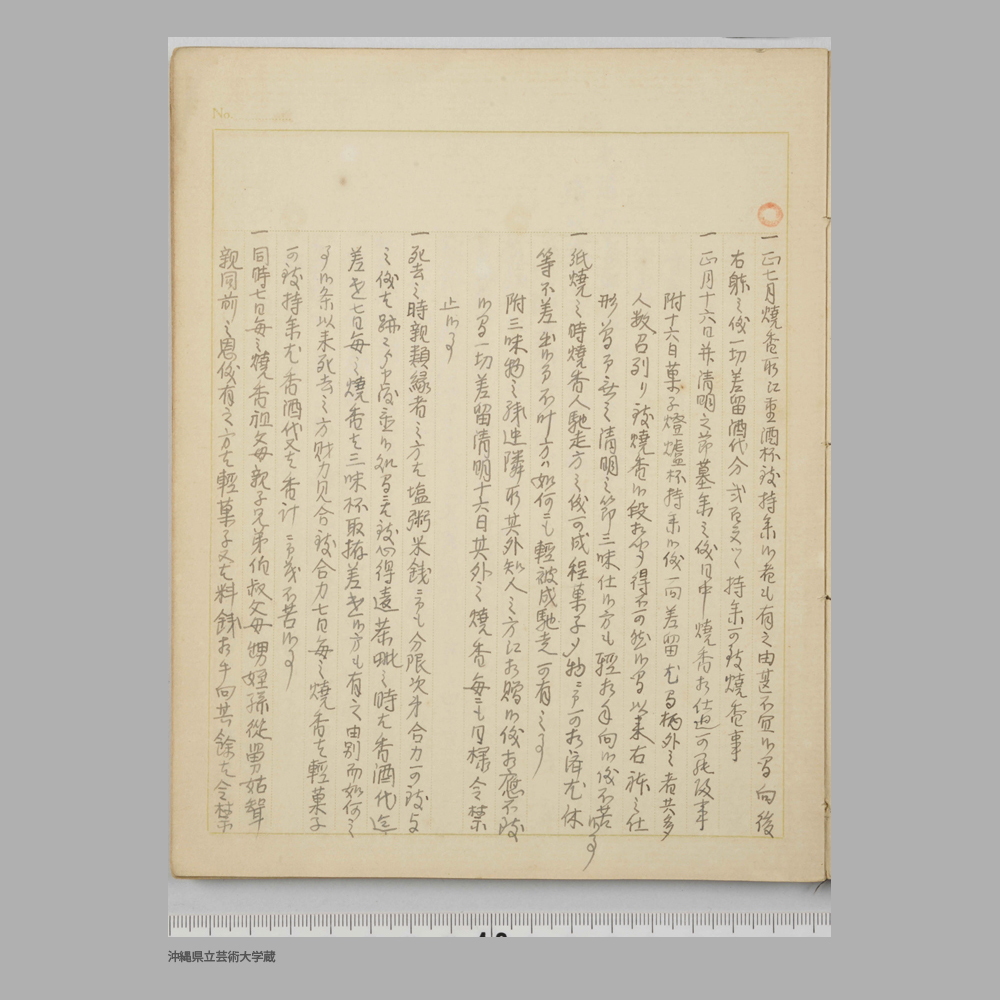 No.
一正七月燒香所江重酒杯致持參候者も有之由甚不宜候間向後
右躰之儀一切差留酒代分貳百文ツヽ持參可致燒香事
一正月十六日并淸明之節墓參之儀日中燒香相仕迠可罷歸事
附十六日菓子燈爐杯持參候儀一向差留尤間柄外之者共多
人数召列り致燒香候段相聞得不可然候間以來右躰之仕
形 淸明之節三味仕候方も輕相手向候儀不苦候事
一紙燒之時燒香人馳走方之儀可成程菓子夕物ニ而可相濟尤休
等不差出候而不叶方ハ如何ニも輕被成馳走可有之事
附三味物之殊近隣所其外知人之方江相贈候儀相應不致
候間一切差留淸明十六日其外之燒香每ニも同樣令禁
止候事
一死去之時親類緣者之方も塩粥米錢ニ而も分限次第合力可致与
之儀を跡ニも申渡置候処 致心得違茶毗之時尤香酒代迄
差遣七日每之燒香を三味杯取揃差遣候方も有之由別而如何之
事候条以来死去之方財力見合致合力七日每之燒香を輕菓子
可致持參尤香酒代又を香計ニ而差不苦候事
一同時七日每之燒香祖父母親子兄弟伯叔父母甥姪孫從舅姑聟
親同前之恩儀有之方を輕菓子又を料錢相手向其餘を令禁
沖縄県立芸術大学蔵